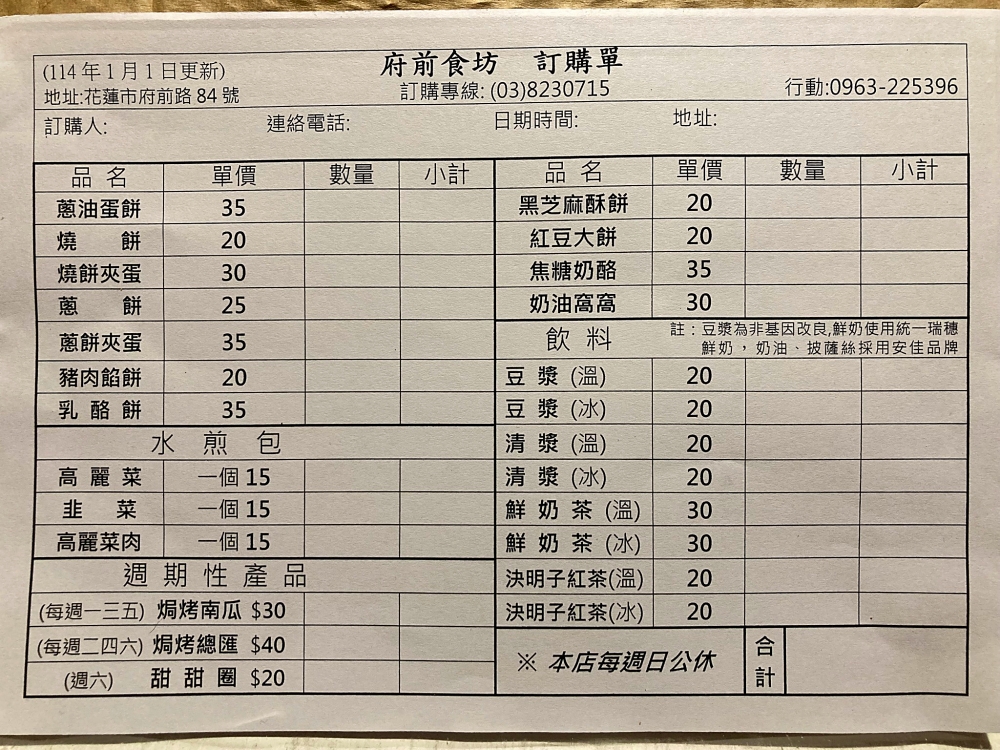 府前食坊 訂購單
(114年1月1日更新)
地址:花蓮市府前路84號 訂購專線: (03)8230715 行動:0963-225396
訂購人: 連絡電話: 日期時間: 地址:
品 名 單價 數量 小計
蔥油蛋餅 35
燒 餅 20
燒餅夾蛋 30
蔥 餅 25
蔥餅夾蛋 35
豬肉餡餅 20
乳 酪 餅 35
水 煎 包
高 麗 菜 一個 15
韭 菜 一個 15
高麗菜肉 一個 15
週 期 性 產 品
(每週一三五) 焗烤南瓜 $30
(每週二四六) 焗烤總匯 $40
(週六) 甜 甜 圈 $20
品 名 單價 數量 小計
黑芝麻酥餅 20
紅豆大餅 20
焦糖奶酪 35
奶油窩窩 30
飲 料
註：豆漿為非基因改良,鮮奶使用統一瑞穗
鮮奶，奶油、披薩絲採用安佳品牌
豆 漿 (溫) 20
豆 漿 (冰) 20
清 漿 (溫) 20
清 漿 (冰) 20
鮮 奶 茶 (溫) 30
鮮 奶 茶 (冰) 30
決明子紅茶(溫) 20
決明子紅茶(冰) 20
※ 本店每週日公休
合計